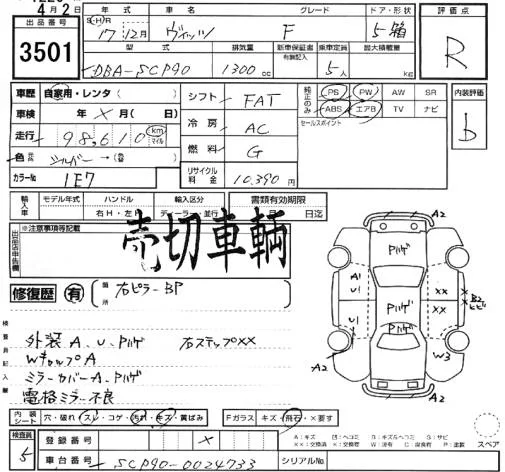 4月2日
出品番号 3501
年式 車名 グレード ドア・形状 評価点
S・H/R 17年12月 ヴィッツ F 5 箱 R
型式 排気量 新車保証書 有無記入 乗車定員 最大積載量
DBA-SCP90 1300 cc 5人 kg
車歴 自家用・レンタ( ) シフト FAT 純正のみ PS PW AW SR 内装評価
車検 年 × 月( 日) ABS エアB TV ナビ D
走行 98,610 km マイル 冷房 AC セールスポイント
色 シルバー→( ) 燃料 G
カラーNo 1E7 リサイクル料金 10,390円
輸入車 モデル年式 ハンドル 右H・左H 輸入区分 ディーラー・並行 書類有効期限 月 日迄
※注意事項等記載
売切車輌
修復歴 有 箇所 右ピラーBP
検査員記入欄
外装 A、U、Pハゲ 右ステップ××
WキャップA
ミラーカバーA、Pハゲ
電格ミラー不良
A2 A2
Pハゲ
A1 ××
Pハゲ
U1 U1 ×× B2
Pハゲ
A2 W3
A2
内装シート 穴・破れ・スレ・コゲ・汚れ・キズ・黄ばみ Fガラス キズ・飛石・×要す
検査員 5 登録番号 × スペア
車台番号 SCP90-0024733 シリアルNo.
A:キズ 凹:ヘコミ B:キズ&ヘコミ S:サビ
×:交換済 W:波有 C:腐食有 P:塗装